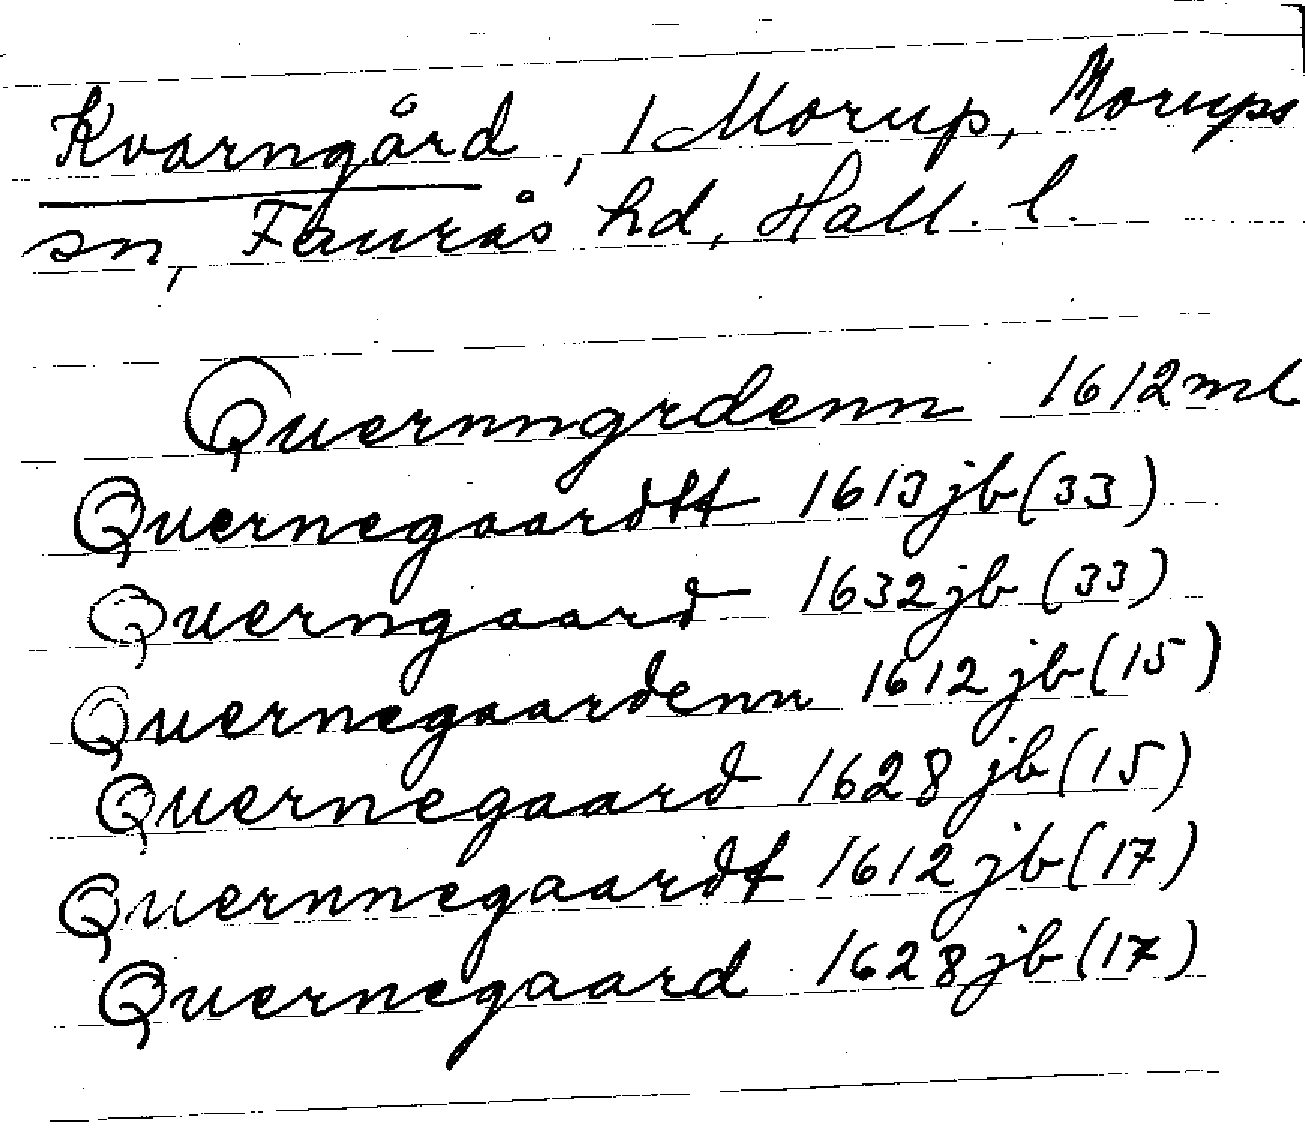 Kvarngård, 1 Morup, Morups
sn, Faurås hd, Hall. l.
Quernngrdenn 1612 ml
Quernegaardtt 1613 jb (33)
Querngaard 1632 jb (33)
Quernegaardenn 1612 jb (15)
Quernegaard 1628 jb (15)
Quernnegaardt 1612 jb (17)
Quernegaard 1628 jb (17)